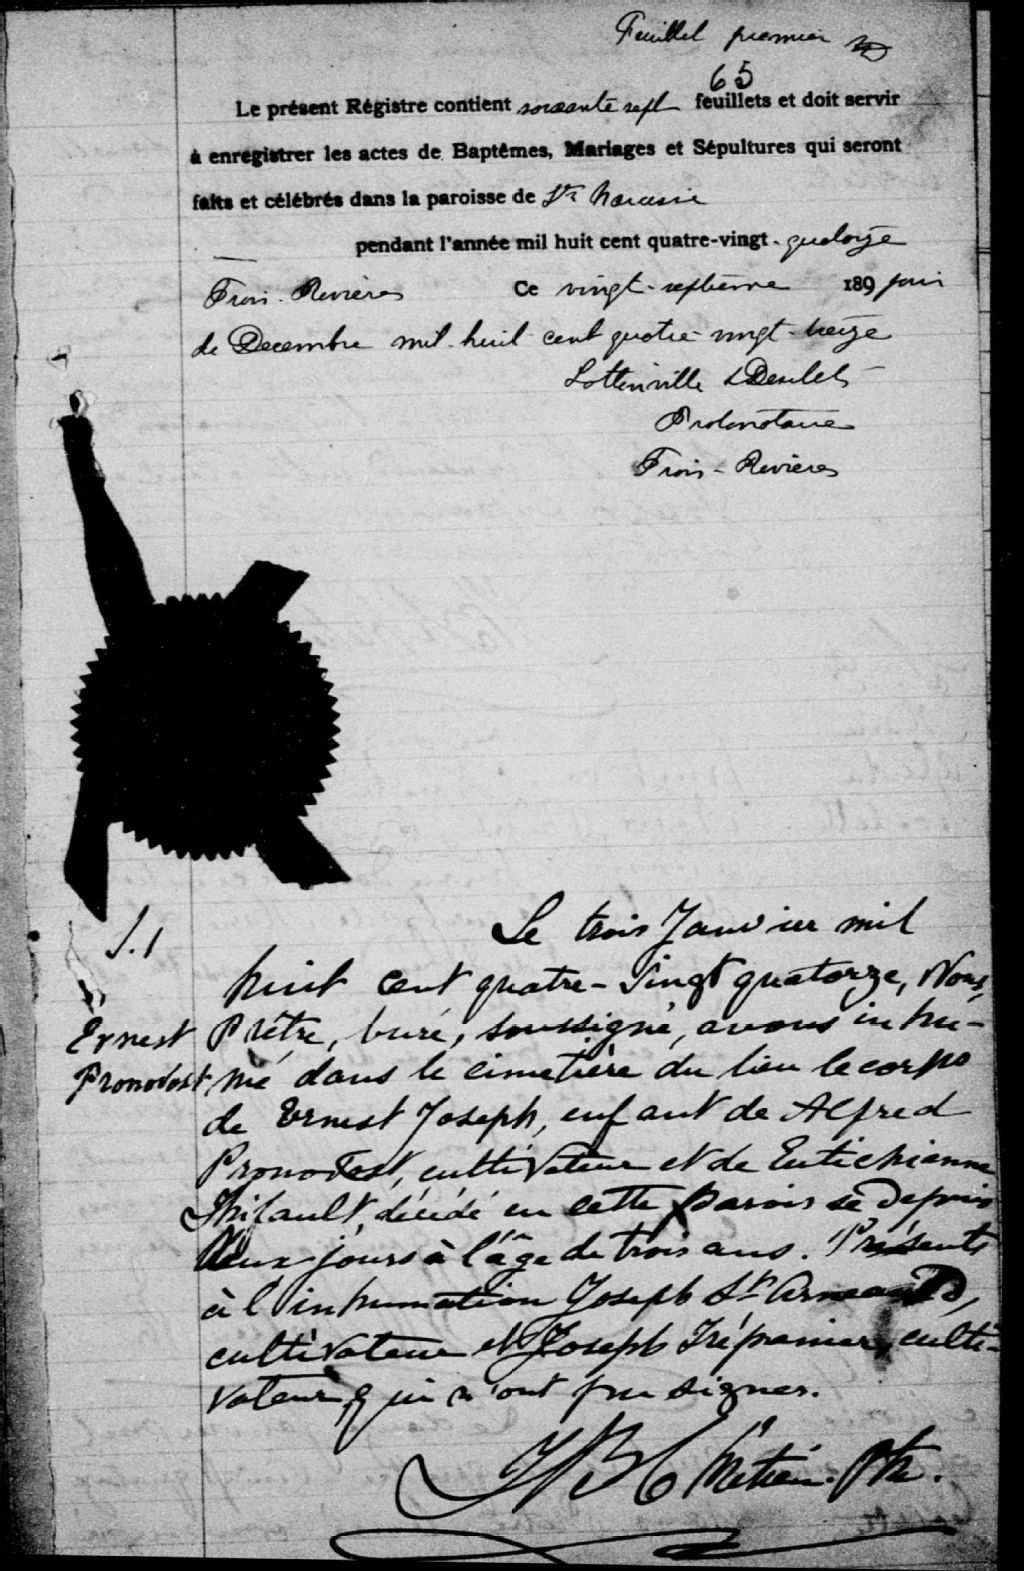 Feuillet premier
65
Le présent Régistre contient soixante sept feuillets et doit servir
à enregistrer les actes de Baptêmes, Mariages et Sépultures qui seront
faits et célébrés dans la paroisse de St Narcisse
pendant l'année mil huit cent quatre-vingt-quatorze
Trois-Rivières Ce vingt-septième 189 jour
de Decembre mil-huit-cent quatre-vingt-treize
Lottinville & Desilets
Protonotaire
Trois-Rivières
S.1
Le trois Janvier mil
huit cent quatre-vingt quatorze, Nous,
Ernest
Prêtre, Curé, soussigné, avons inhu-
Pronovost
mé dans le cimetière du lieu le corps
de Ernest Joseph, enfant de Alfred
Pronovost, cultivateur et de Eutichienne
Thifault, décédé en cette paroisse depuis
deux jours à l'âge de trois ans. Présents
à l'inhumation Joseph St Arneauld,
cultivateur et Joseph Trépanier, culti-
vateur, qui n'ont pu signer.
Ptre.